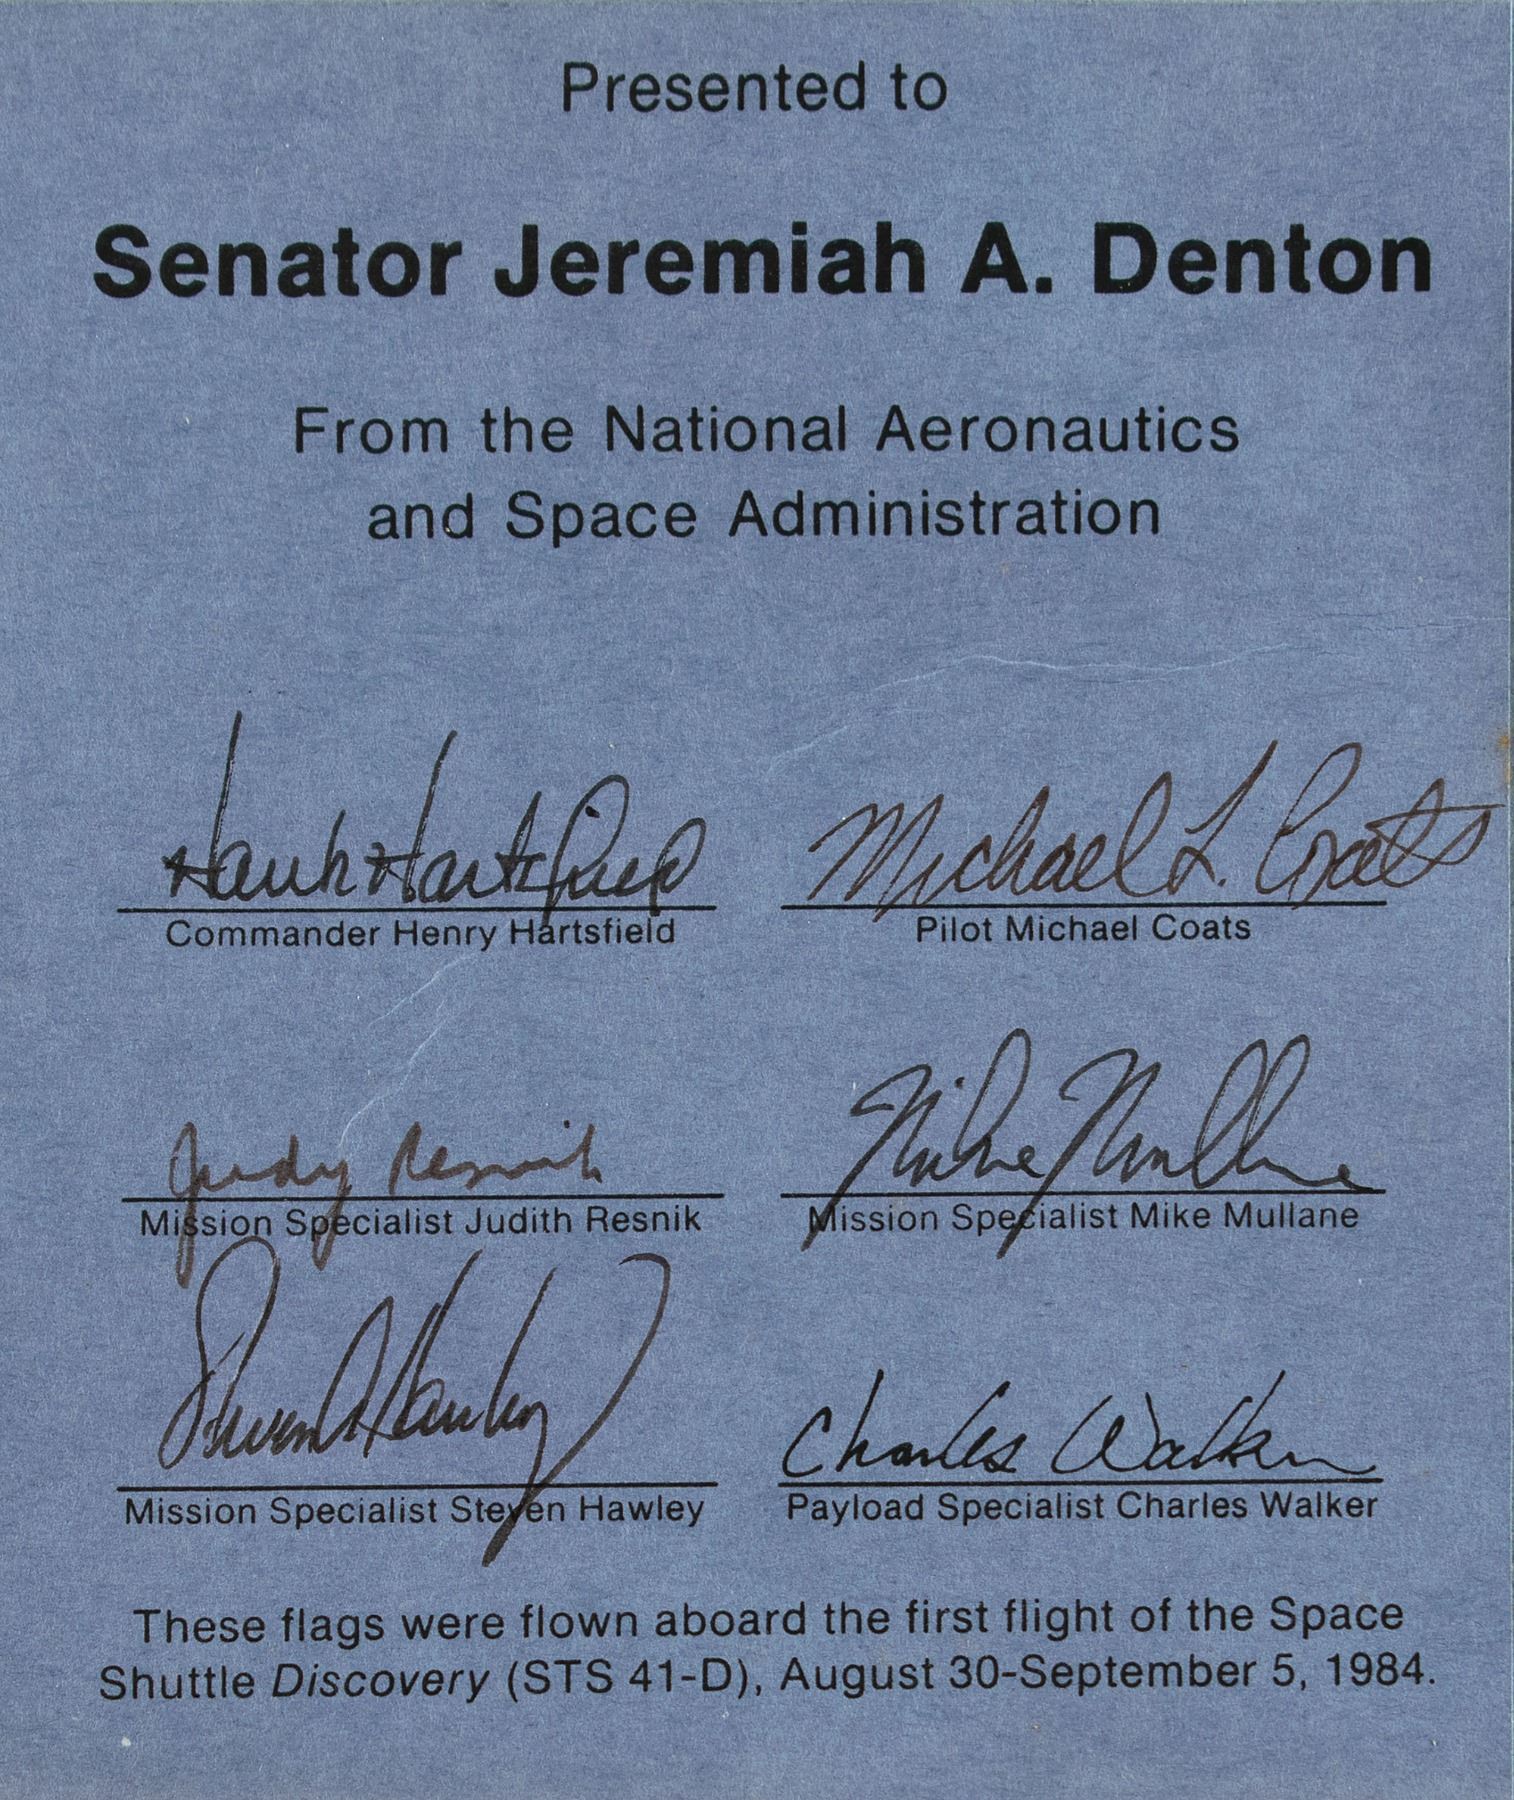 Presented to
Senator Jeremiah A. Denton
From the National Aeronautics
and Space Administration
Hank Hartsfield Michael L. Coats
Commander Henry Hartsfield Pilot Michael Coats
Judy Resnik Mike Mullane
Mission Specialist Judith Resnik Mission Specialist Mike Mullane
Steven A Hawley Charles Walker
Mission Specialist Steven Hawley Payload Specialist Charles Walker
These flags were flown aboard the first flight of the Space
Shuttle Discovery (STS 41-D), August 30-September 5, 1984.